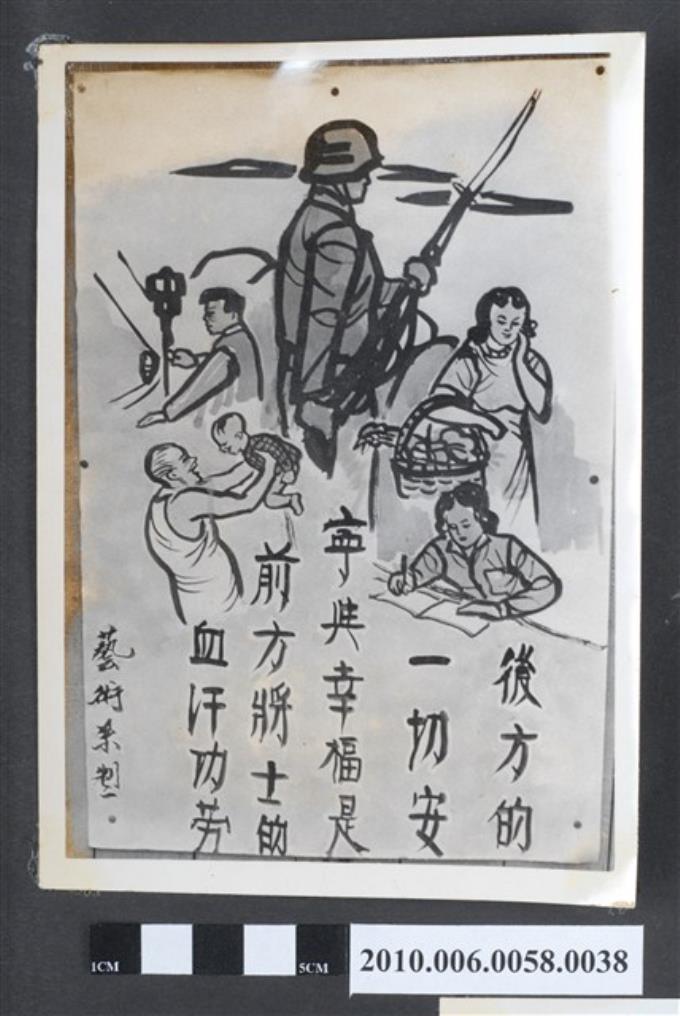 後方的
一切安
寧與幸福是
前方將士的
血汗功劳
藝術系制
1CM
5CM
2010.006.0058.0038